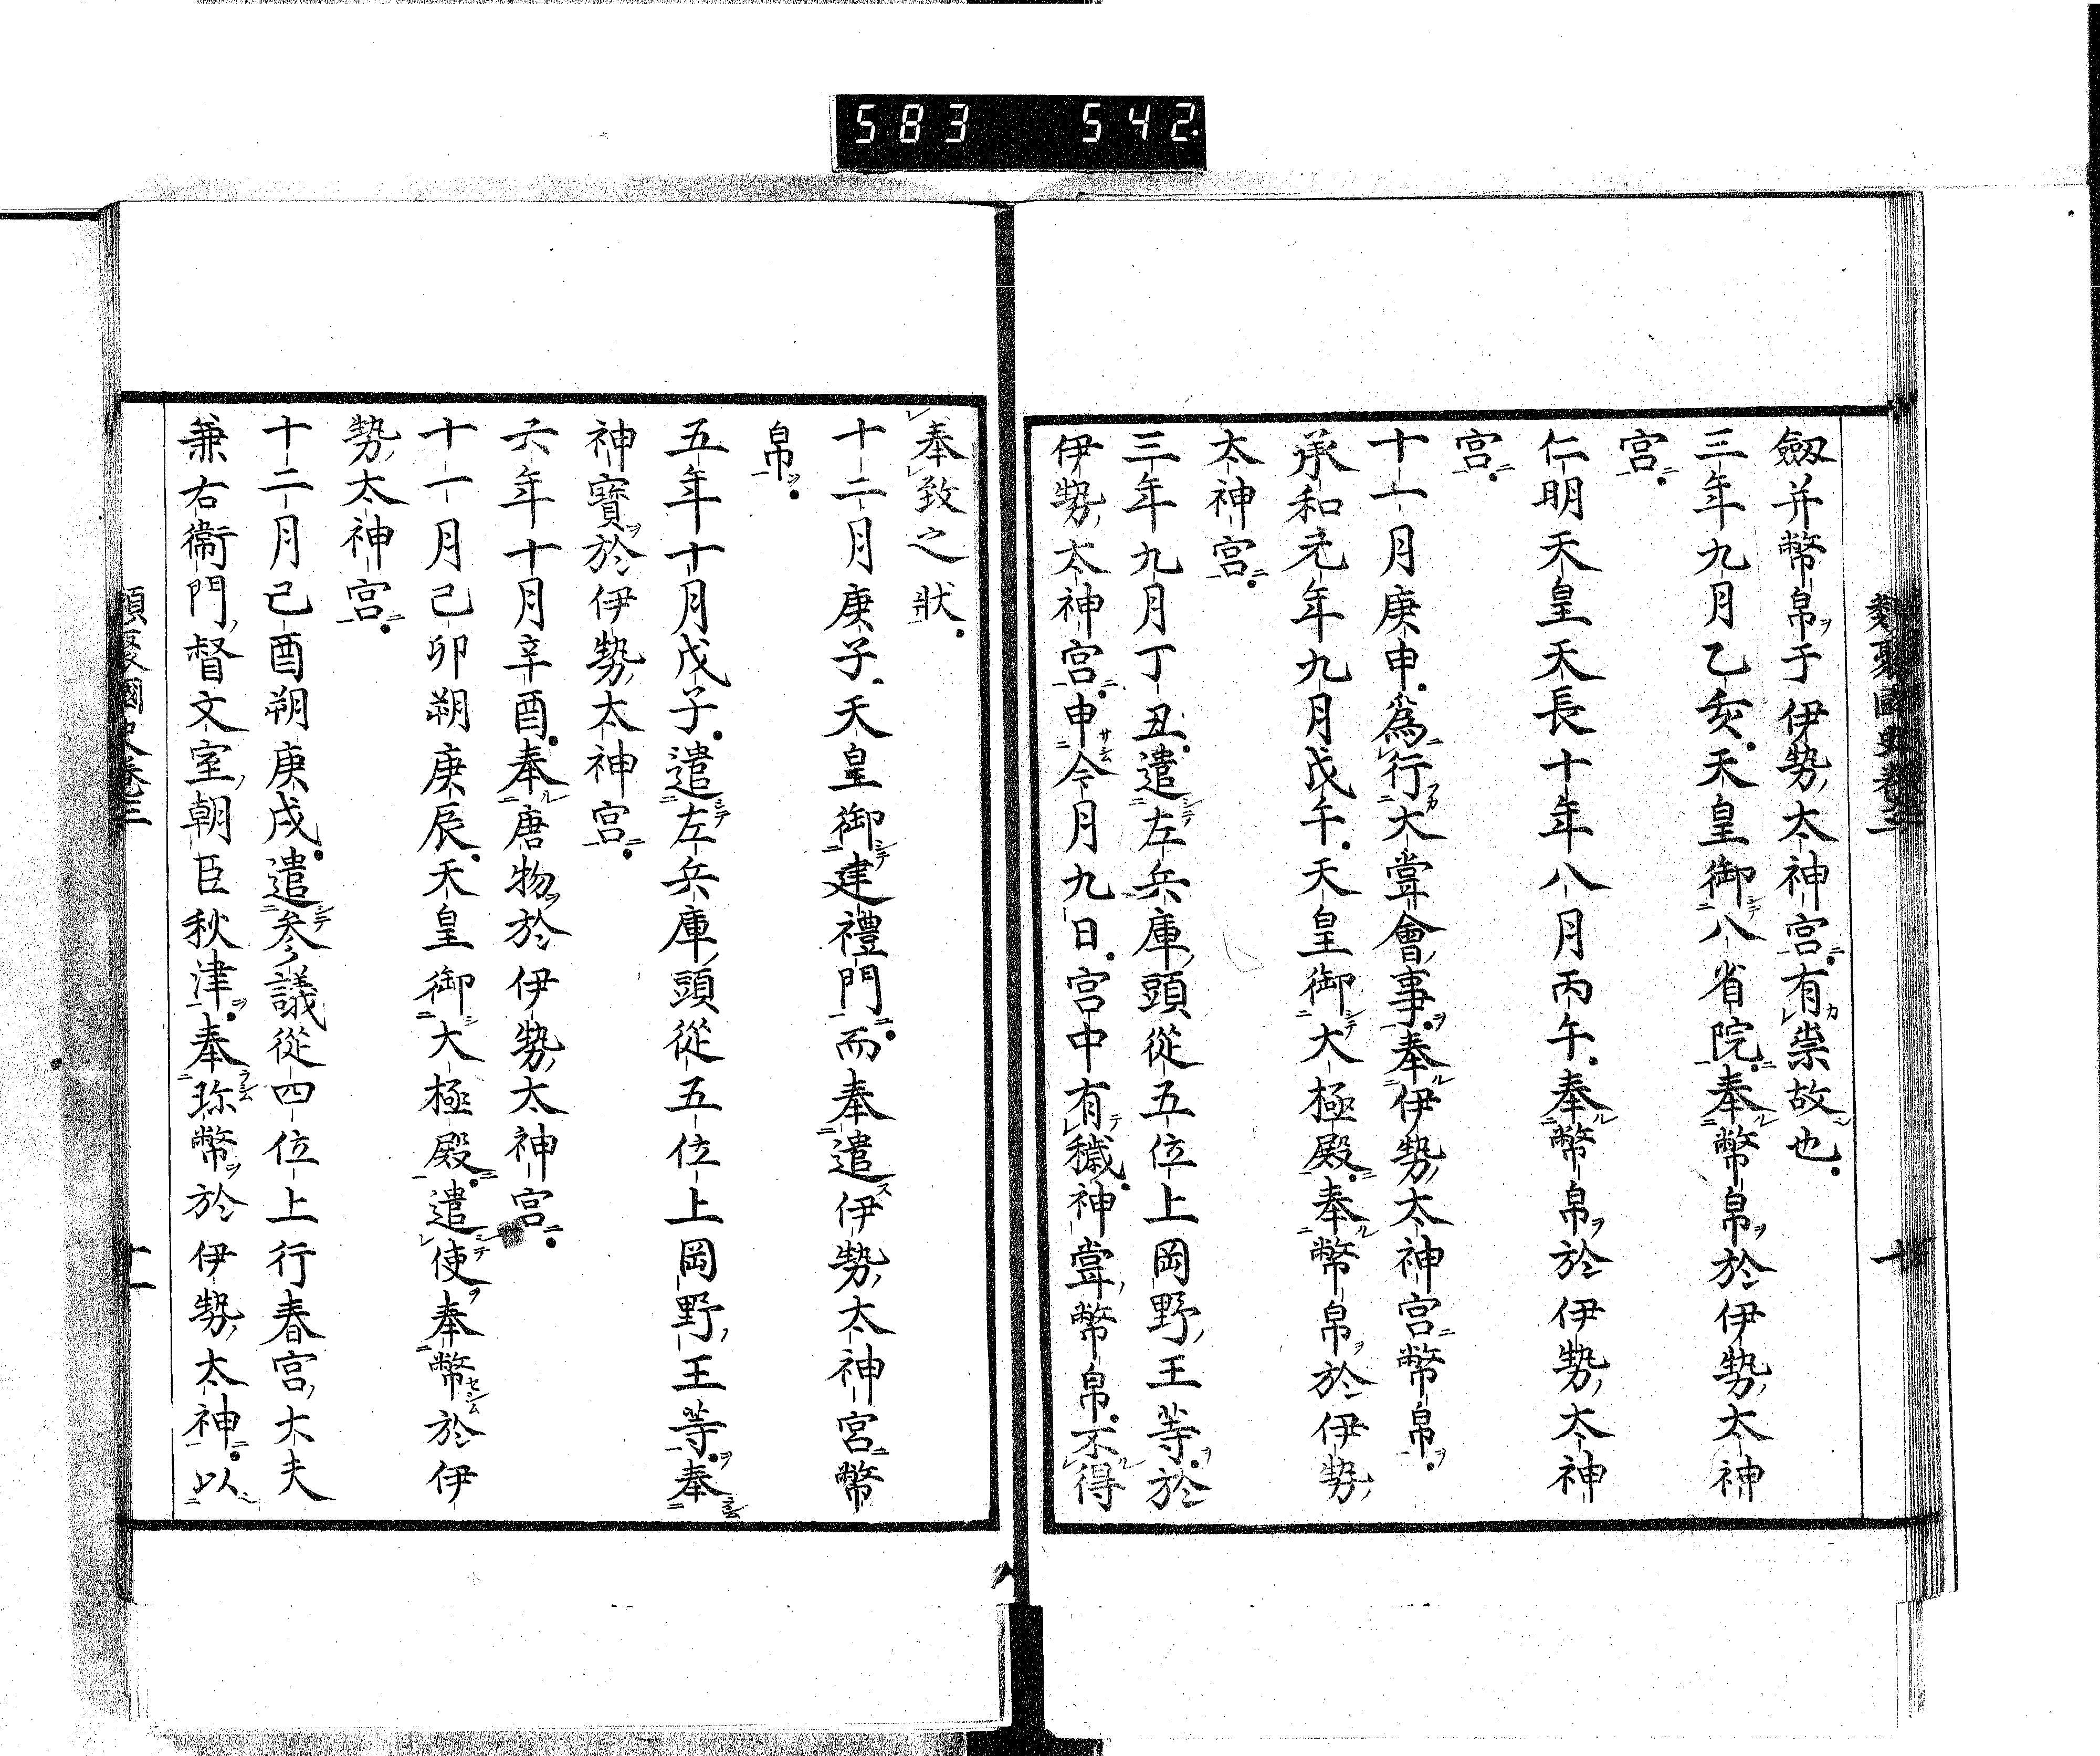 583 542
類聚國史卷三
劔并幣帛于伊勢太神宮有祟故也
三年九月乙亥天皇御八省院奉幣帛於伊勢太神
宮
仁明天皇天長十年八月丙午奉幣帛於伊勢太神
宮
十一月庚申爲行大甞會事奉伊勢太神宮幣帛
承和元年九月戊午天皇御大極殿奉幣帛於伊勢
太神宮
三年九月丁丑遣左兵庫頭從五位上岡野王等於
伊勢太神宮申今月九日宮中有穢神甞幣帛不得
奉致之狀
十二月庚子天皇御建禮門而奉遣伊勢太神宮幣
帛
五年十月戊子遣左兵庫頭從五位上岡野王等奉
神寶於伊勢太神宮
六年十月辛酉奉唐物於伊勢太神宮
十一月己卯朔庚辰天皇御大極殿遣使奉幣於伊
勢太神宮
十二月己酉朔庚戌遣参議從四位上行春宮大夫
兼右衞門督文室朝臣秋津奉珎幣於伊勢太神以
類聚國史卷三